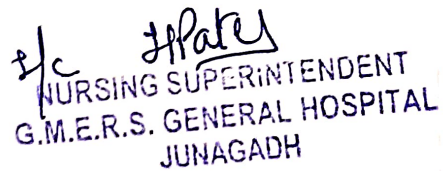 I/c HPatel
NURSING SUPERINTENDENT
G.M.E.R.S. GENERAL HOSPITAL
JUNAGADH